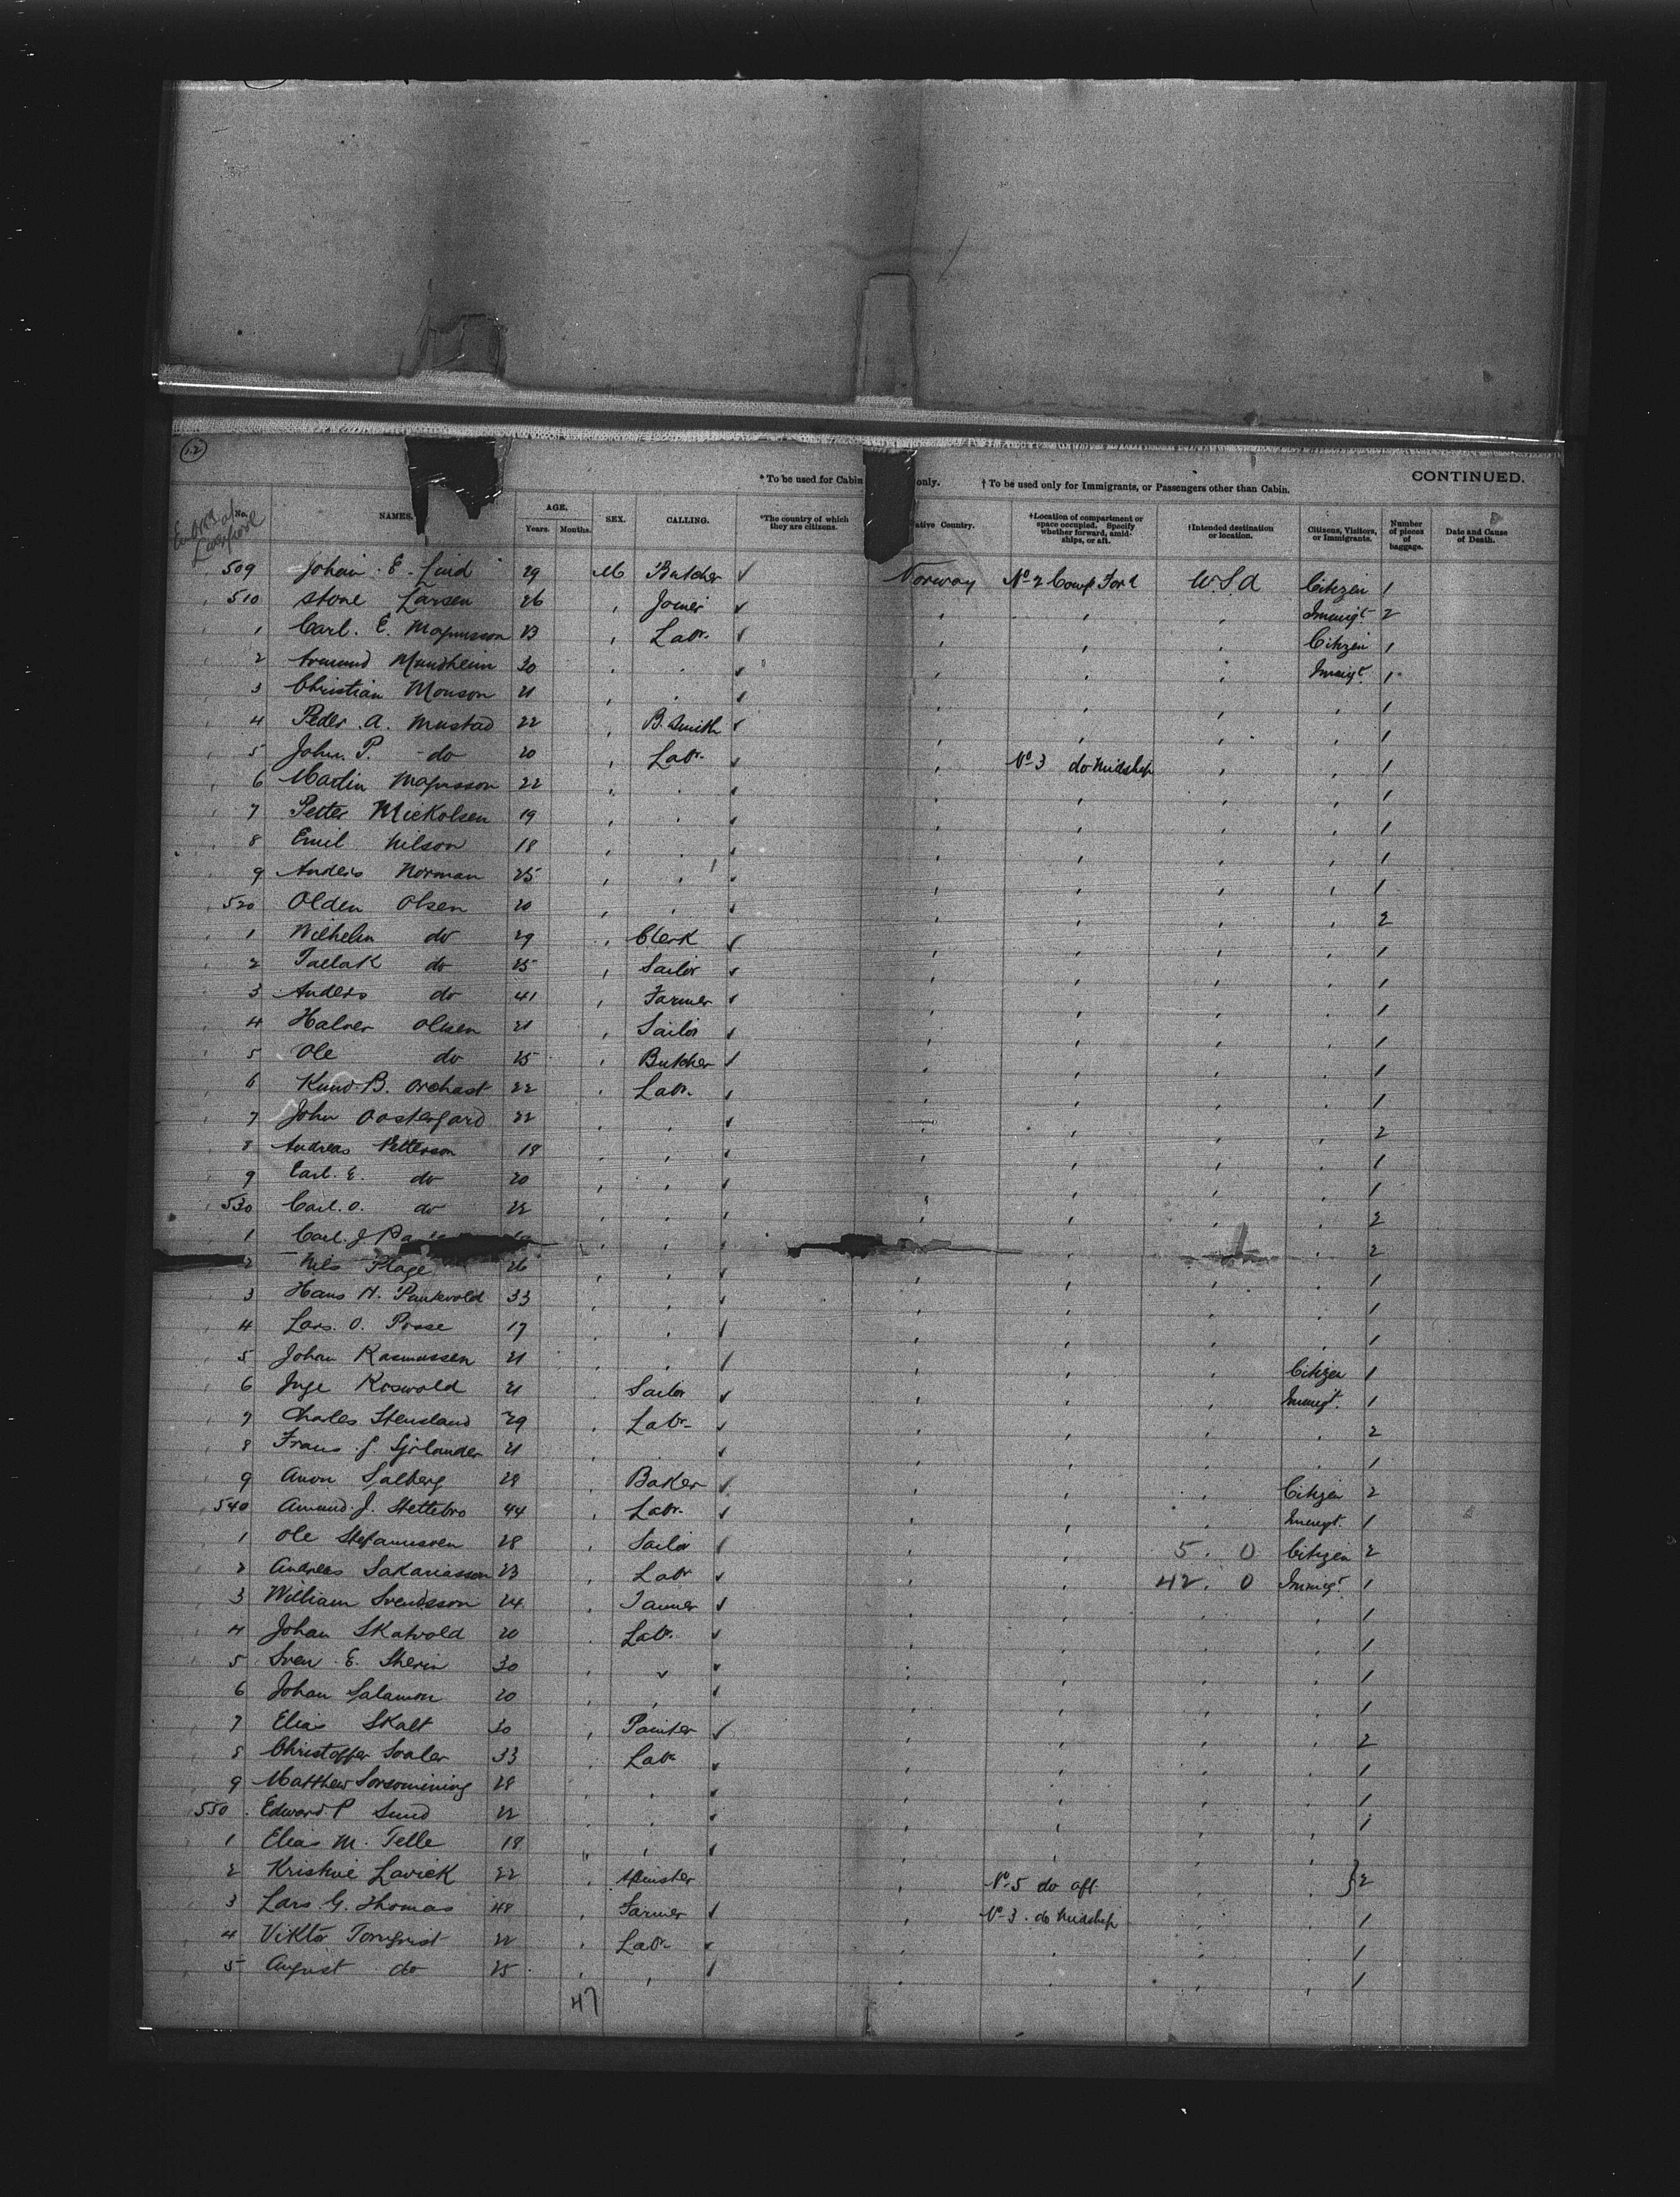 12
* To be used for Cabin only. † To be used only for Immigrants, or Passengers other than Cabin. CONTINUED.
No. NAMES. AGE. Years. Months. SEX. CALLING. *The country of which they are citizens. Native Country. †Location of compartment or space occupied. Specify whether forward, amidships, or aft. †Intended destination or location. Citizens, Visitors, or Immigrants. Number of pieces of baggage. Date and Cause of Death.
509 Johan E. Lind 29 M Butcher Norway No 2 Comp Ford U.S.A Citizen 1
510 Larsen 26 Joiner Immigt 2
1 Carl. E. Magnusson 23 Labr. Citizen 1
2 Mundheim 30 Immigt. 1
3 Christian Monson 21 1
4 Peder A. Mustad 22 B. Smith 1
5 John. P. do 20 Labr. No 3 do Midship 1
6 Martin Magnusson 22 1
7 Petter Mickolsen 19 1
8 Emil Nilson 18 1
9 Anders Norman 25 1
520 Olden Olsen 20 2
1 Wilhelm do 29 Clerk 1
2 Tallak do 25 Sailor 1
3 Anders do 41 Farmer 1
4 Halver Olsen 21 Sailor 1
5 Ole do 25 Butcher 1
6 B. 22 Labr. 1
7 John Oostergard 22 2
8 Andreas Petterson 18 1
9 Carl. E. do 20 1
530 Carl. O. do 22 2
1 Carl. J 2
2 Nils Plage 26 1
3 Hans H. 33 1
4 Lars. O. Posse 17 1
5 Johan Rasmussen 21 Citizen 1
6 Inge Roswold 21 Sailor Immigt. 1
7 Charles Stensland 29 Labr. 2
8 Frans G. Sjolander 21 1
9 Salberg 28 Baker Citizen 2
540 Amund. J. Stettebro 44 Labr. Immigt. 1
1 Ole Stefanussen 28 Sailor 5. 0 Citizen 2
2 Andreas Sakariasson 23 Labr 42. 0 Immigt. 1
3 William Svendsson 24 1
4 Johan Skatvold 20 Labr. 1
5 Sven E. 30 1
6 Johan Salamon 20 1
7 Elias Skalt 30 Painter 2
8 Christoffer Soaler 33 Labr 1
9 Matthew 28 1
550 Edward P Sund 22 1
1 Elias M. Telle 18
2 Kristine Lavick 22 Spinster No 5 do aft } 2
3 Lars G. Thomas 48 Farmer No 3. do Midship 1
4 Viktor Tornqvist 22 Labr. 1
5 August do 25 1
47